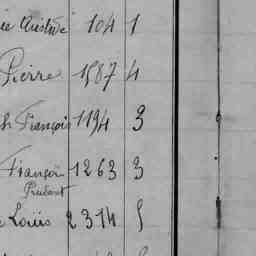 ie Aristide 104 1
Pierre 1587 4
h François 1194 3
François 1263 3
Prudent
Louis 2314 5